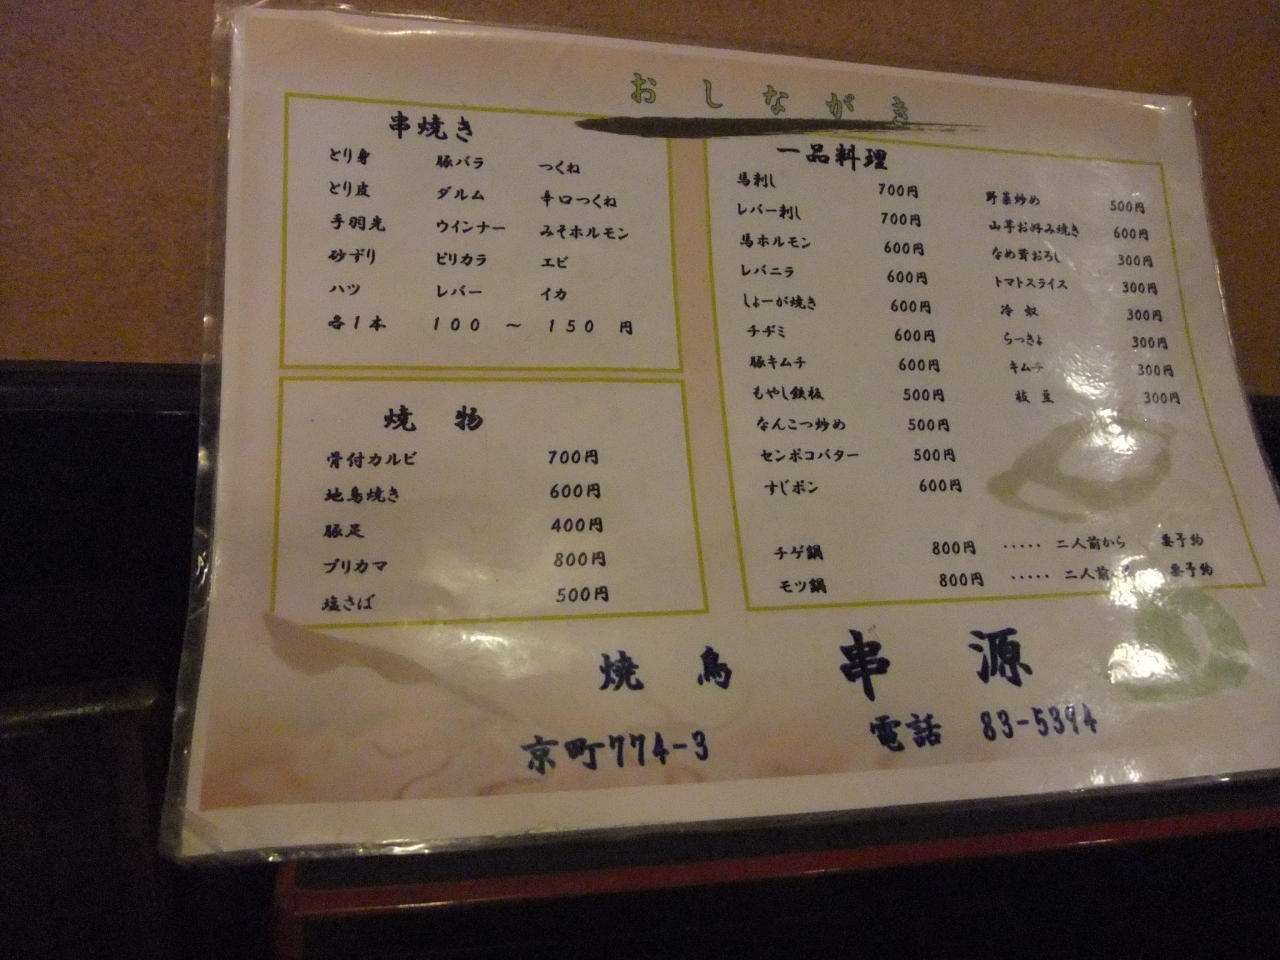 おしながき
串焼き
とり身 豚バラ つくね
とり皮 ダルム 辛口つくね
手羽先 ウインナー みそホルモン
砂ずり ピリカラ エビ
ハツ レバー イカ
各1本 100 〜 150 円
焼物
骨付カルビ 700円
地鳥焼き 600円
豚足 400円
ブリカマ 800円
塩さば 500円
一品料理
馬刺し 700円
レバー刺し 700円
馬ホルモン 600円
レバニラ 600円
しょーが焼き 600円
チヂミ 600円
豚キムチ 600円
もやし鉄板 500円
なんこつ炒め 500円
センポコバター 500円
すじポン 600円
野菜炒め 500円
山芋お好み焼き 600円
なめ茸おろし 300円
トマトスライス 300円
冷奴 300円
らっきょ 300円
キムチ 300円
枝豆 300円
チゲ鍋 800円 ・・・・・ 二人前から 要予約
モツ鍋 800円 ・・・・・ 二人前 要予約
焼鳥 串源
京町774-3 電話 83-5394